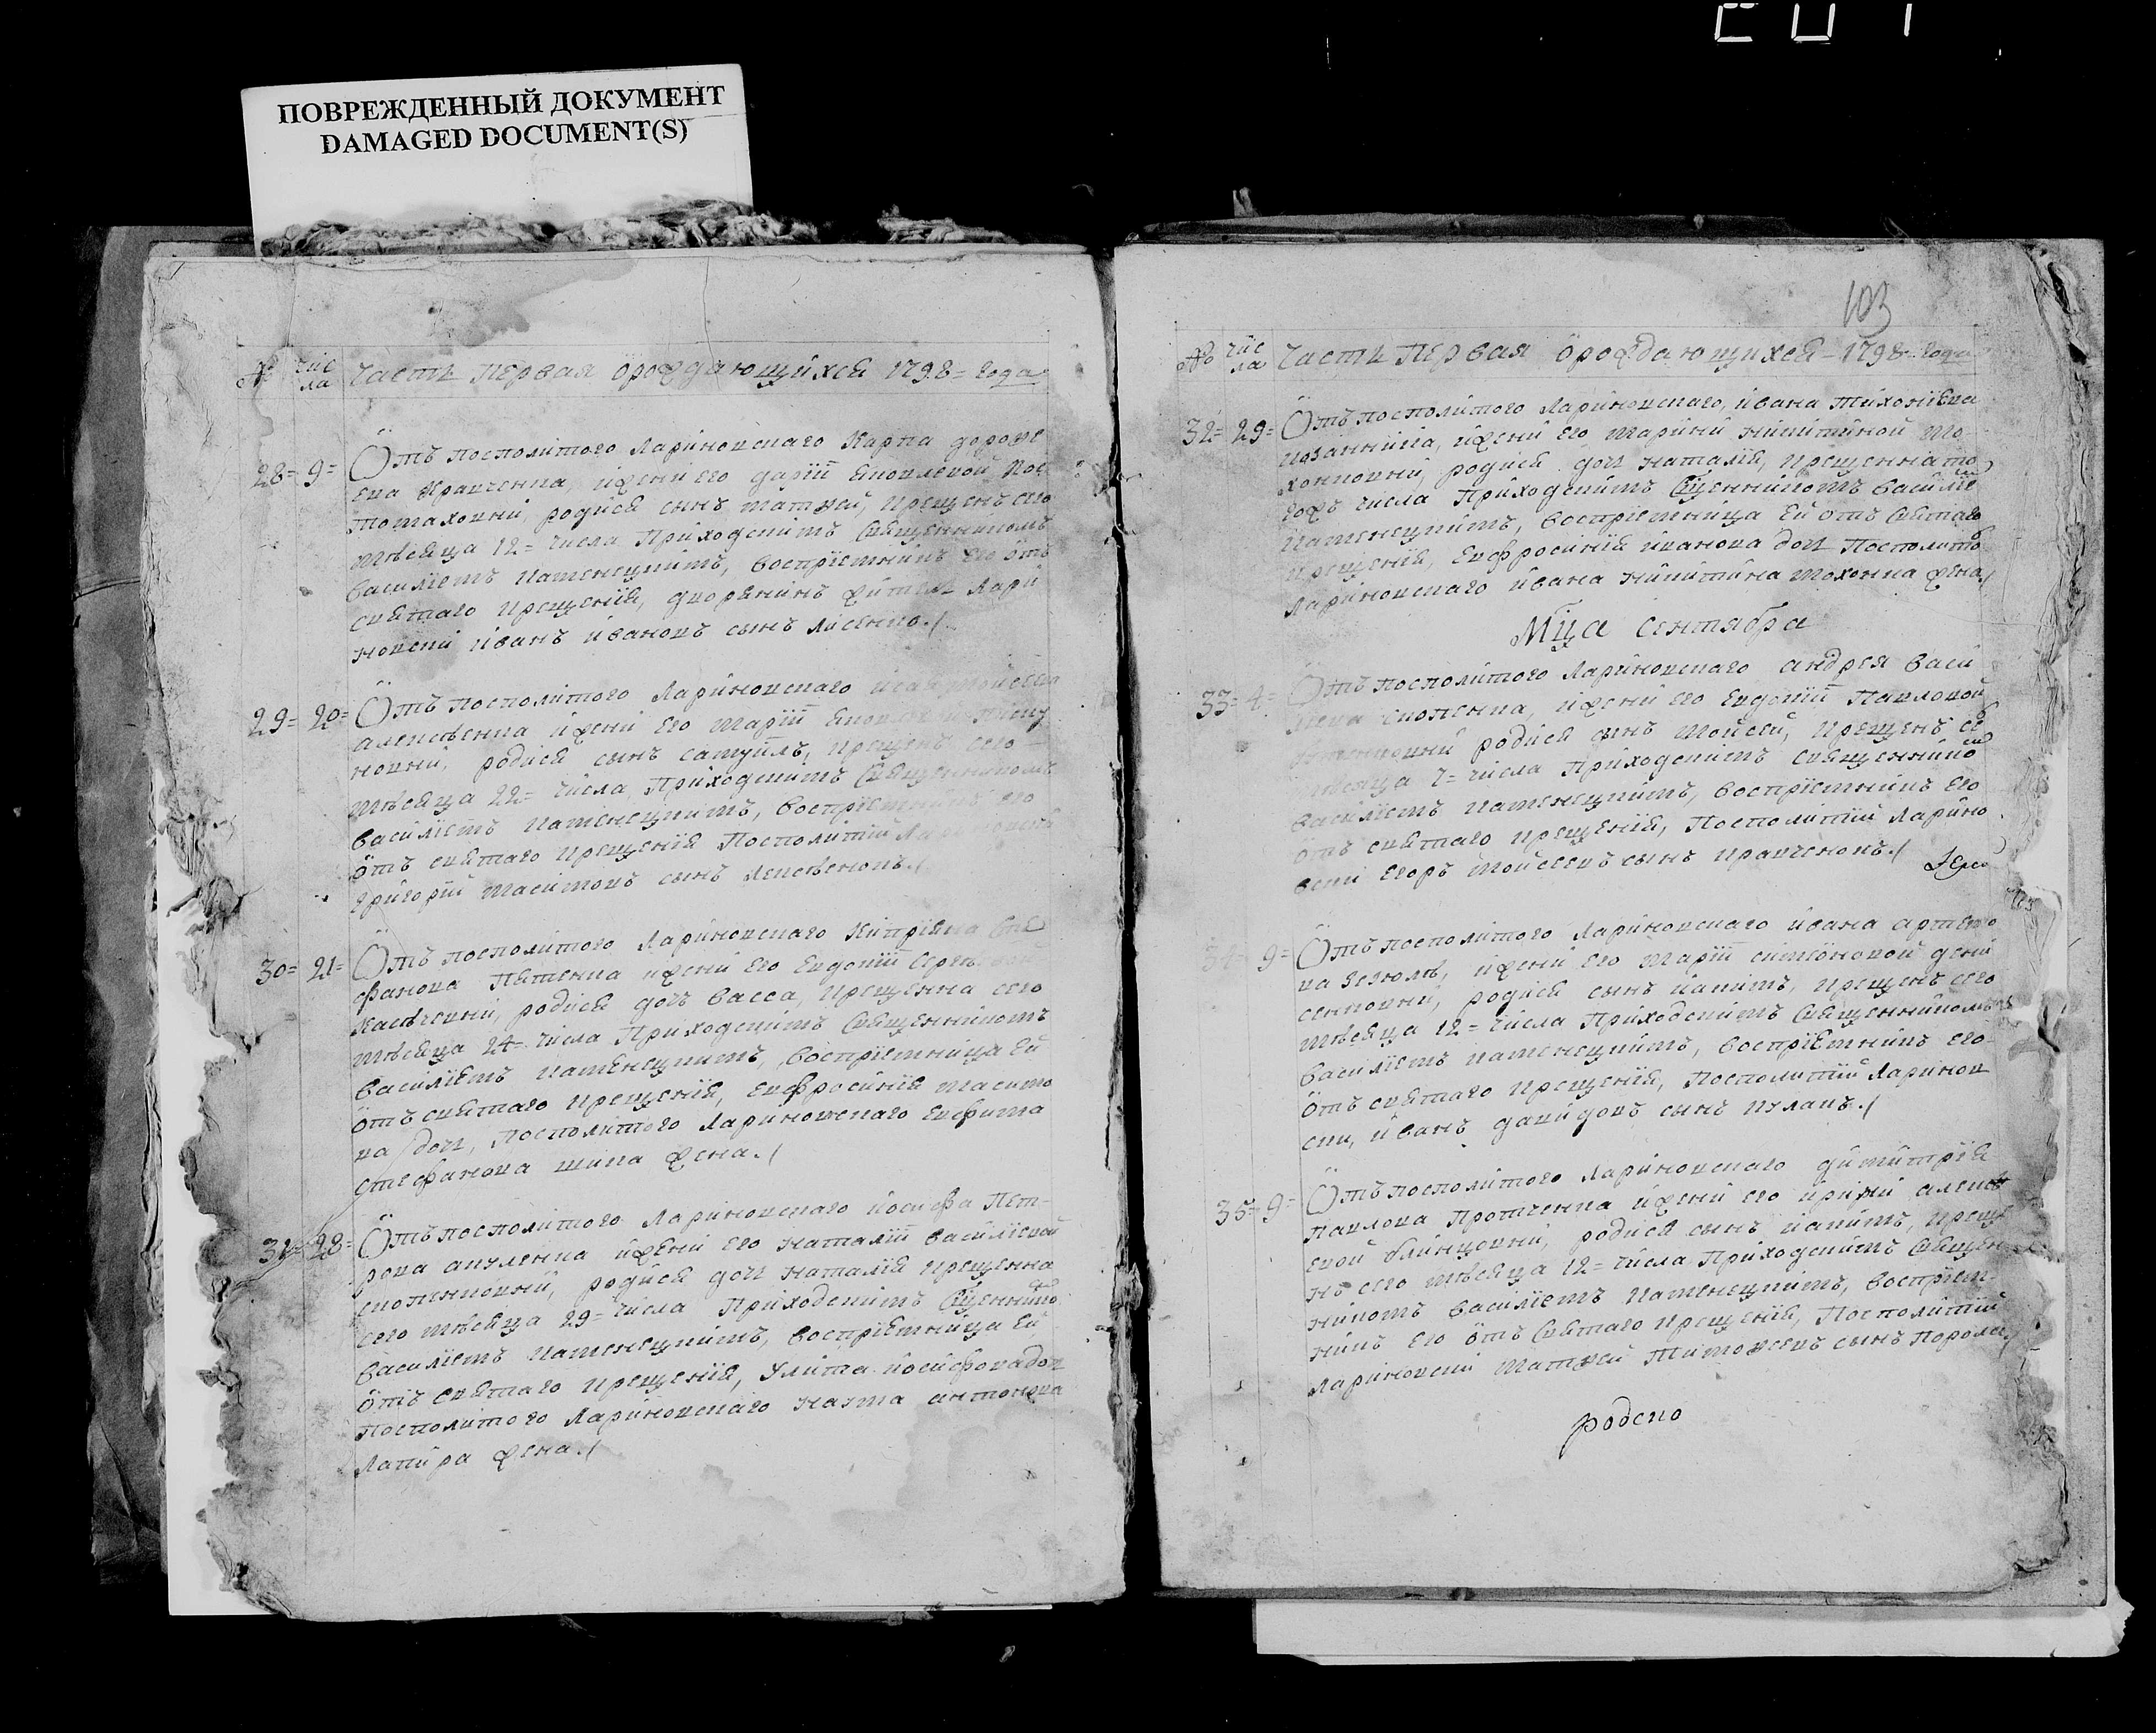 ПОВРЕЖДЕННЫЙ ДОКУМЕНТ
DAMAGED DOCUMENT(S)
103
№ чис
ла Часть Первая ö рождающихся 1798= года
28= 9= Отъ посполитого Лариновскаго Карпа дороѳе
ева Кравченка, ижени его даріи Яковлевой
родися сынъ матвей, крещенъ сего
мѣсяца 12= числа Приходскимъ Священникомъ
василіемъ каменецкимъ, воспріемникъ его ѿтъ
святаго крещенія, дворянинъ житель Лари
новский иванъ ивановъ сынъ лисенко./
29= 20= Отъ посполитого Лариновскаго
алексѣенка ижени его маріи
новни, родися сынъ самуилъ, крещенъ сего
мѣсяца 22= числа, Приходскимъ Священникомъ
василіемъ каменецкимъ, воспріемникъ его
ѿтъ святаго крещенія Посполитій
григорій максимовъ сынъ
30= 21= Отъ посполитого Лариновскаго Кипріяна сте
фанова Пятенка ижени его Евдокіи
родися дочь васса, крещенна сего
мѣсяца 24= числа Приходскимъ Священникомъ
василіемъ каменецкимъ, воспріемница ей
ѿтъ святаго крещенія, евфросинія максимо
ва дочь, посполитого Лариновскаго евфима
стефанова шила жена./
31= 28= Отъ посполитого Лариновскаго иосифа Пет-
рова акуленка ижени его наталіи василіевой
родися дочь наталія крещенна
сего мѣсяца 29= числа Приходскимъ Сщенникомъ
василіемъ каменецкимъ, воспріемница ей
ѿтъ святаго крещенія, Улита иосифова дочь
посполитого Лариновскаго наума антонова
Лапира жена./
№ чис
ла Часть Первая ö рождающихся 1798= года
32= 29= Отъ посполитого Лариновскаго, ивана тихоніева
ижени его марини никитиной мо
хонковни, родися дочь наталія, крещенна то
гожъ числа Приходскимъ Сщенникомъ василіе
каменецкимъ, воспріемница ей отъ святаго
крещенія, евфросинія иванова дочь Посполито
Лариновскаго ивана никитина мохонка жена./
Мца Сентября
33= 4= Отъ посполитого Лариновскаго андрея васи
лиева ижени его евдокіи Павловой
родися сынъ мойсей, крещенъ се
мѣсяца 7= числа Приходскимъ священнико
василіемъ каменецкимъ, воспріемникъ его
отъ святаго крещенія, Посполитій Ларино
вски егоръ мойсеевъ сынъ кравченокъ./
34= 9= Отъ посполитого Лариновскаго ивана артемо
ва зезюли, ижени его маріи симіоновой дени
сенковни, родися сынъ іакимъ, крещенъ сего
мѣсяца 12= числа Приходскимъ священникомъ
василіемъ каменецкимъ, воспріемникъ его
ѿтъ святаго крещенія, Посполитій Ларинов
ски, иванъ давидовъ сынъ кулакъ./
35= 9= Отъ посполитого Лариновскаго димитрія
павлова Протченка ижени его ирини алексѣ
евой блинцовни, родися сынъ іакимъ, креще
нъ сего мѣсяца 12= числа Приходскимъ Священ
никомъ василіемъ каменецкимъ, воспріем
никъ его ѿтъ святаго крещенія, Посполитій
Лариновски матвей тимоѳеевъ сынъ